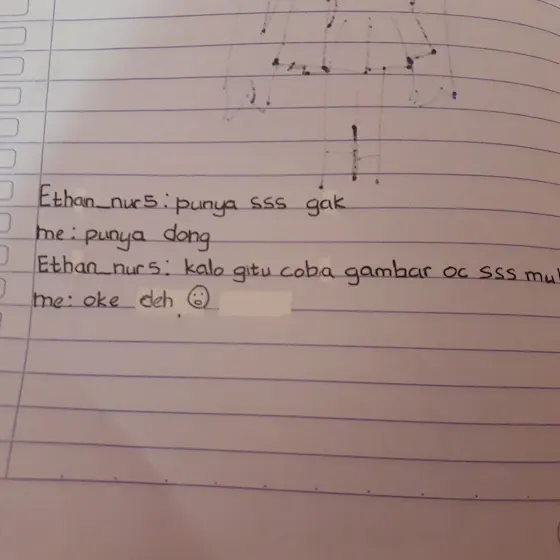 Ethan_nur5: punya sss gak
me: punya dong
Ethan_nur5: kalo gitu coba gambar oc sss
me: oke deh